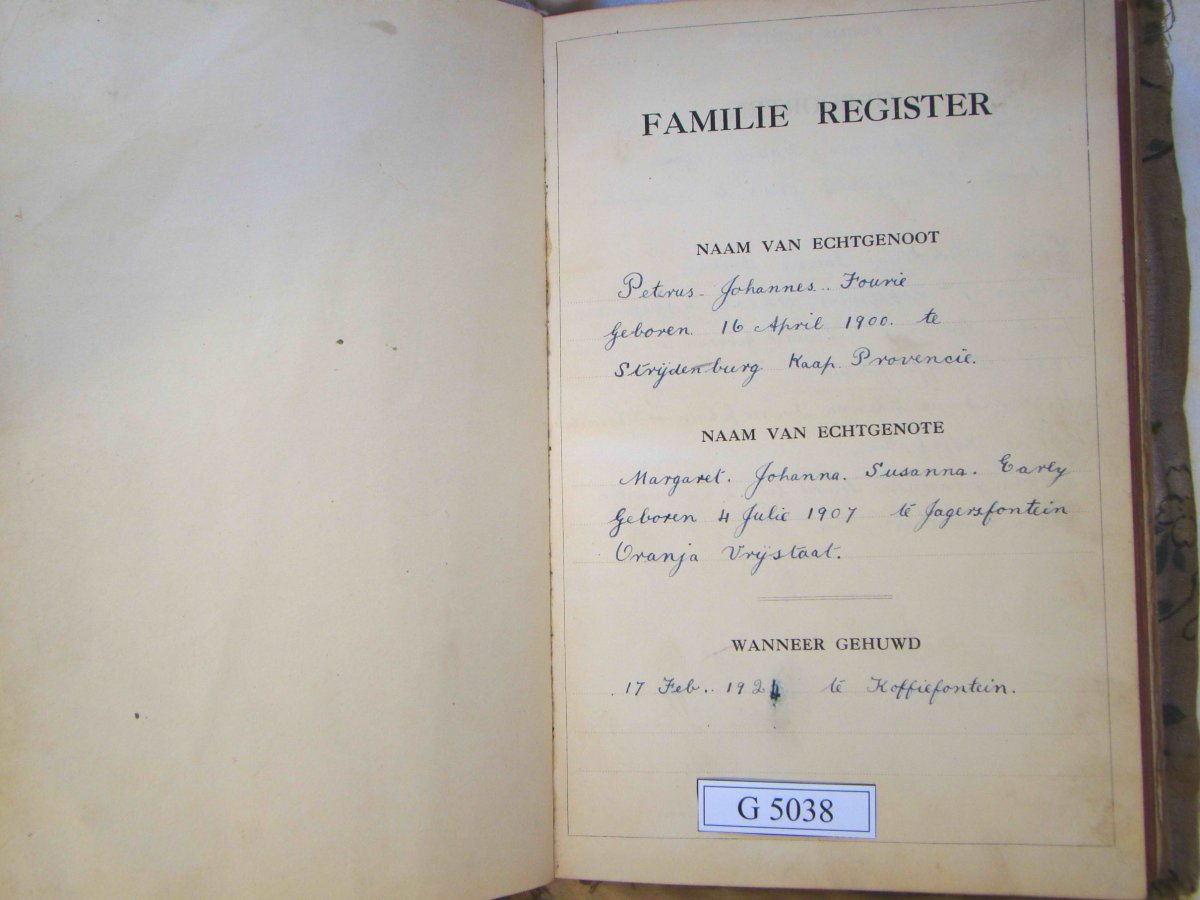 FAMILIE REGISTER
NAAM VAN ECHTGENOOT
Petrus Johannes Fourie
Geboren 16 April 1900. te
Strijdenburg Kaap Provencie.
NAAM VAN ECHTGENOTE
Margaret. Johanna. Susanna. Early
Geboren 4 Julie 1907 te Jagersfontein
Oranja Vrijstaat.
WANNEER GEHUWD
17 Feb.. 1924 te Koffiefontein.
G 5038